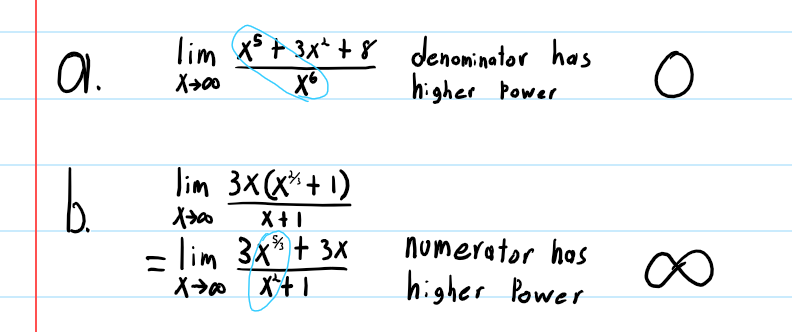 a. lim x→∞ (x^5 + 3x^2 + 8)/(x^6) denominator has higher power 0
b. lim x→∞ (3x(x^(2/3) + 1))/(x + 1)
= lim x→∞ (3x^(5/3) + 3x)/(x^2 + 1) numerator has higher power ∞